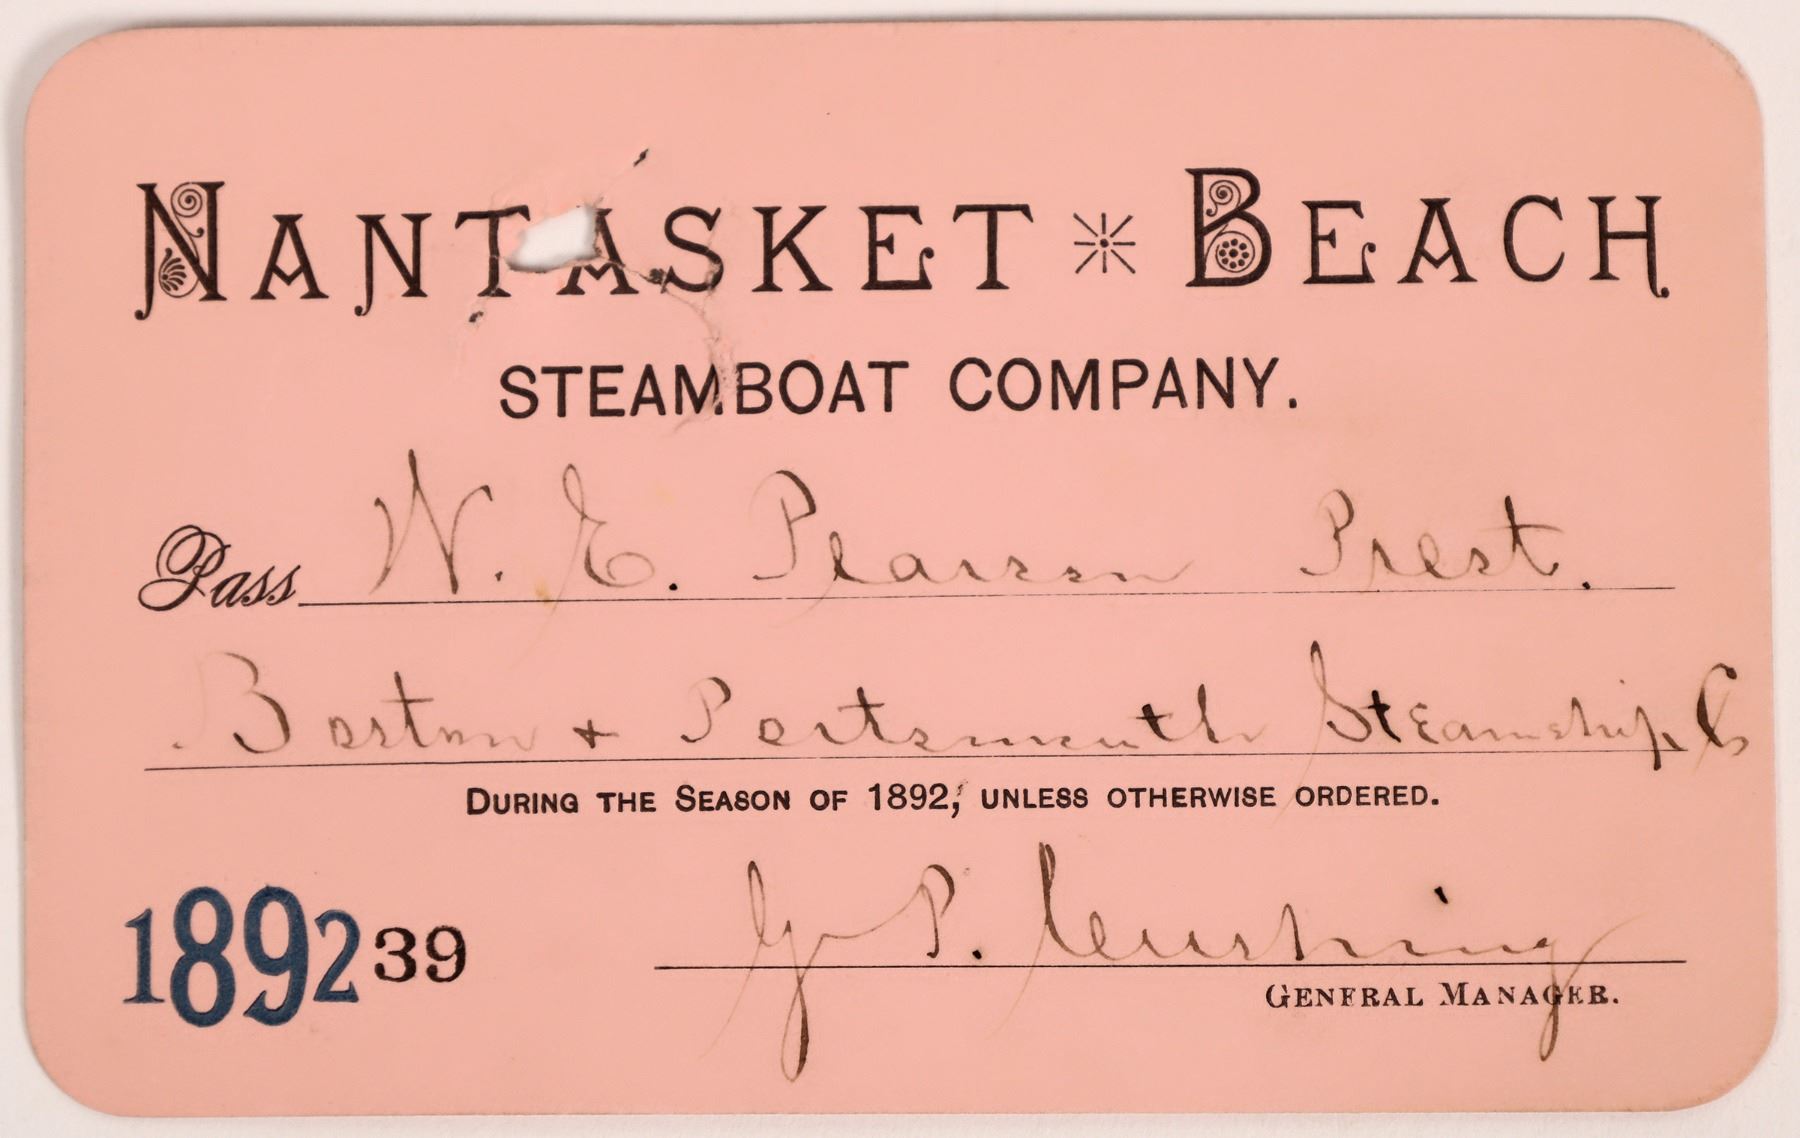 NANTASKET BEACH
STEAMBOAT COMPANY.
Pass W. E. Pearson Prest.
Boston + Portsmouth Steamship Co
DURING THE SEASON OF 1892, UNLESS OTHERWISE ORDERED.
1892 39 G. P. Cushing
GENERAL MANAGER.